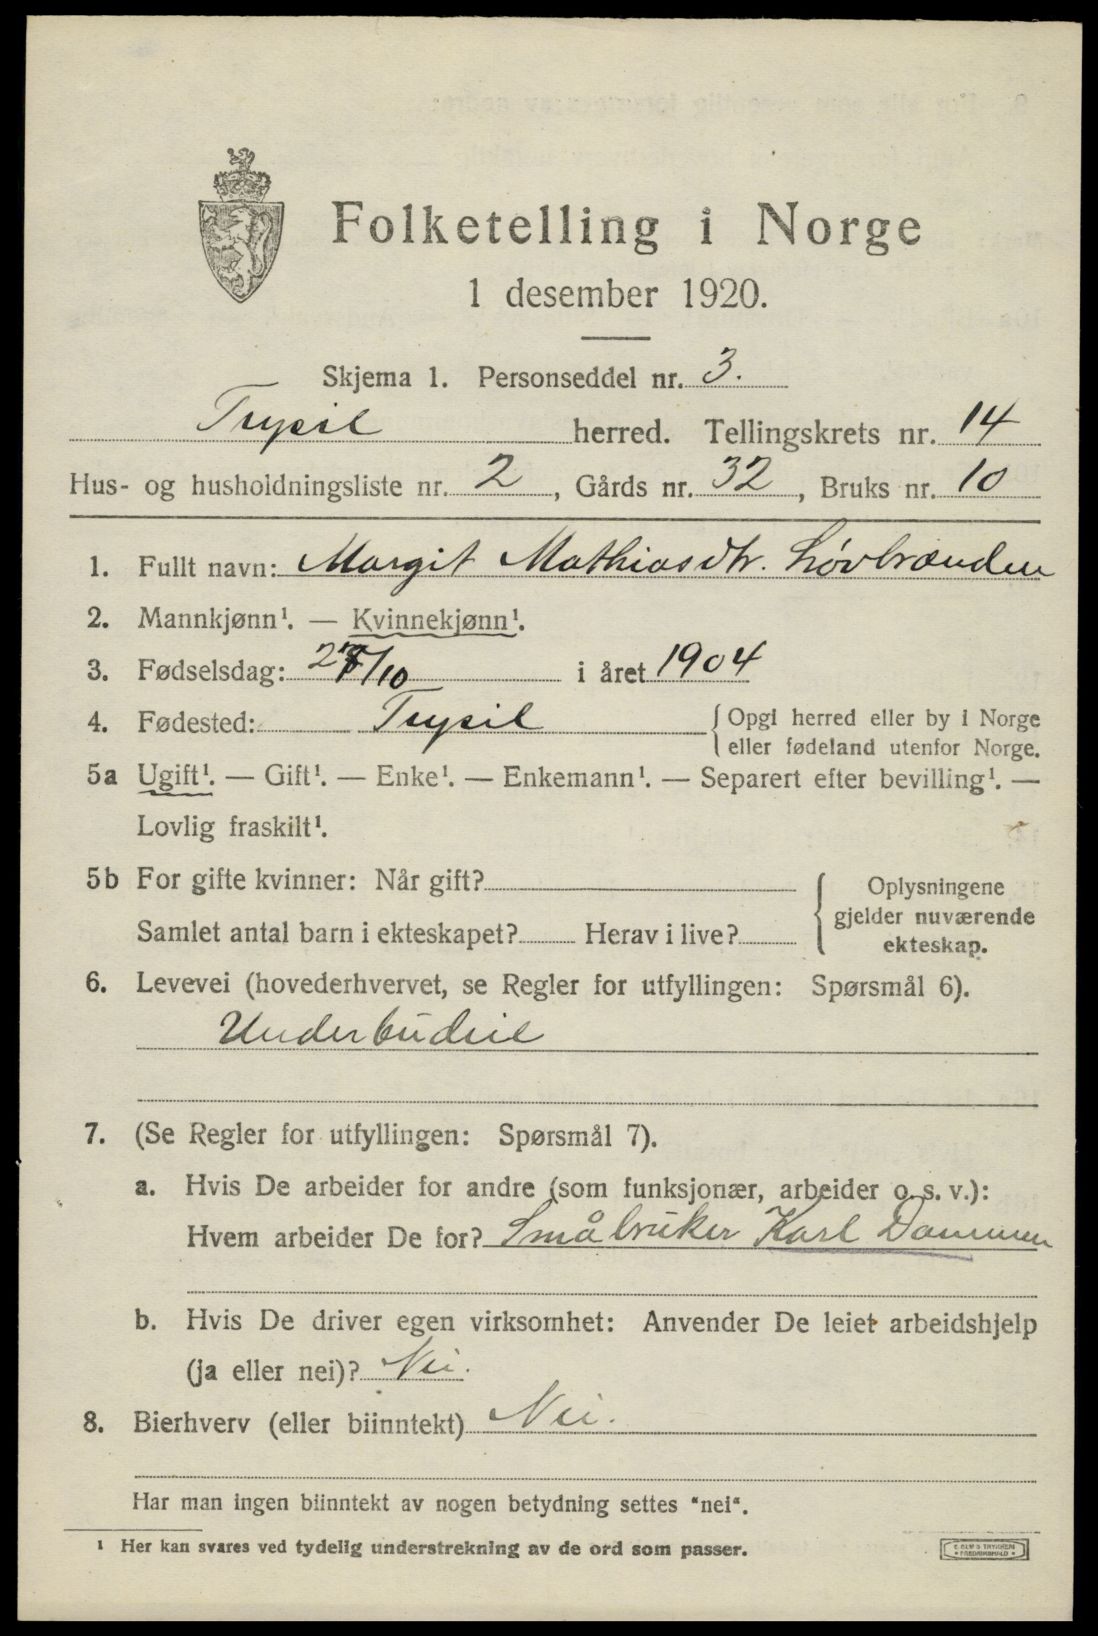 Folketelling i Norge
1 desember 1920.
Skjema 1. Personseddel nr. 3.
Trysil herred. Tellingskrets nr. 14
Hus- og husholdningsliste nr. 2, Gårds nr. 32, Bruks nr. 10
1. Fullt navn: Margit Mathiasdtr. Løvbrænden
2. Mannkjønn¹. — Kvinnekjønn¹.
3. Fødselsdag: /10 i året 1904
4. Fødested: Trysil {Opgi herred eller by i Norge
eller fødeland utenfor Norge.
5a Ugift¹. — Gift¹. — Enke¹. — Enkemann¹. — Separert efter bevilling¹. —
Lovlig fraskilt¹.
5b For gifte kvinner: Når gift?
Samlet antal barn i ekteskapet? Herav i live?
Oplysningene
gjelder nuværende
ekteskap.
6. Levevei (hovederhvervet, se Regler for utfyllingen: Spørsmål 6).
Underbudeie
7. (Se Regler for utfyllingen: Spørsmål 7).
a. Hvis De arbeider for andre (som funksjonær, arbeider o. s. v.):
Hvem arbeider De for? Småbruker Karl Dammen
b. Hvis De driver egen virksomhet: Anvender De leiet arbeidshjelp
(ja eller nei)? Nei.
8. Bierhverv (eller biinntekt) Nei.
Har man ingen biinntekt av nogen betydning settes "nei".
¹ Her kan svares ved tydelig understrekning av de ord som passer.